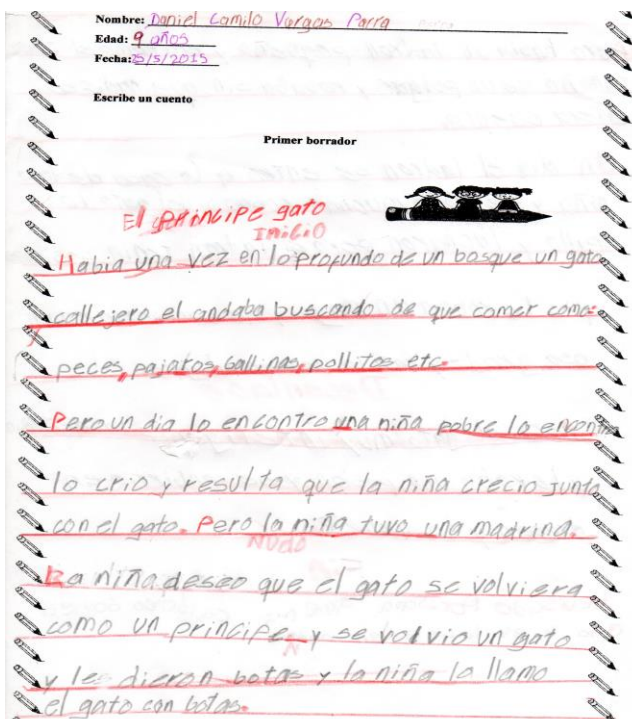 Nombre: Daniel Camilo Vargas Parra
Edad: 9 años
Fecha: 25/5/2015
Escribe un cuento
Primer borrador
El principe gato
INICIO
Habia una vez en lo profundo de un bosque un gato
callejero el andaba buscando de que comer como:
peces, pajaros, gallinas, pollitos etc.
Pero un dia lo encontro una niña pobre lo encontro
lo crio y resulta que la niña crecio junto
con el gato. Pero la niña tuvo una madrina.
NUDO
La niña deseo que el gato se volviera
como un principe y se volvio un gato
y les dieron botas y la niña lo llamo
el gato con botas.